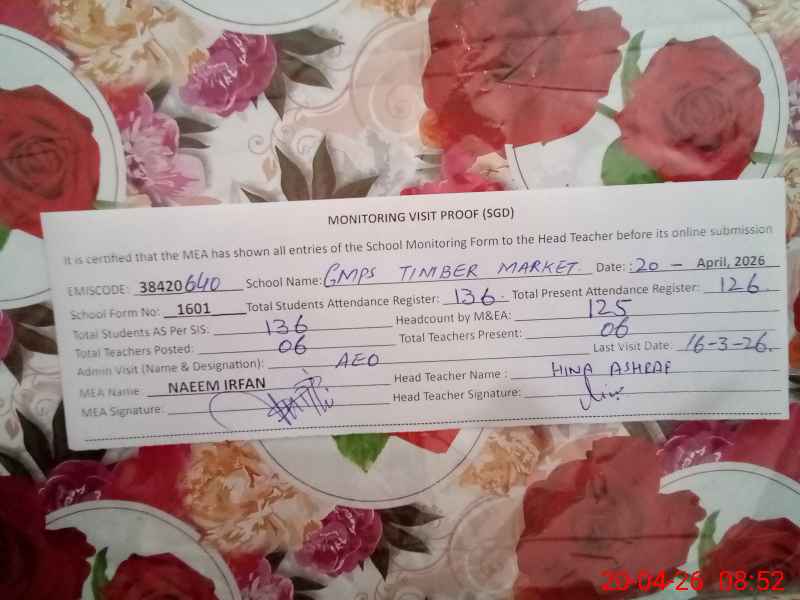 MONITORING VISIT PROOF (SGD)
It is certified that the MEA has shown all entries of the School Monitoring Form to the Head Teacher before its online submission
EMISCODE: 38420640 School Name: GMPS TIMBER MARKET. Date: 20 - April, 2026
School Form No: 1601 Total Students Attendance Register: 136. Total Present Attendance Register: 126.
Total Students AS Per SIS: 136 Headcount by M&EA: 125
Total Teachers Posted: 06 Total Teachers Present: 06
Admin Visit (Name & Designation): AEO Last Visit Date: 16-3-26.
MEA Name NAEEM IRFAN Head Teacher Name : HINA ASHRAF
MEA Signature: Head Teacher Signature:
20-04-26 08:52